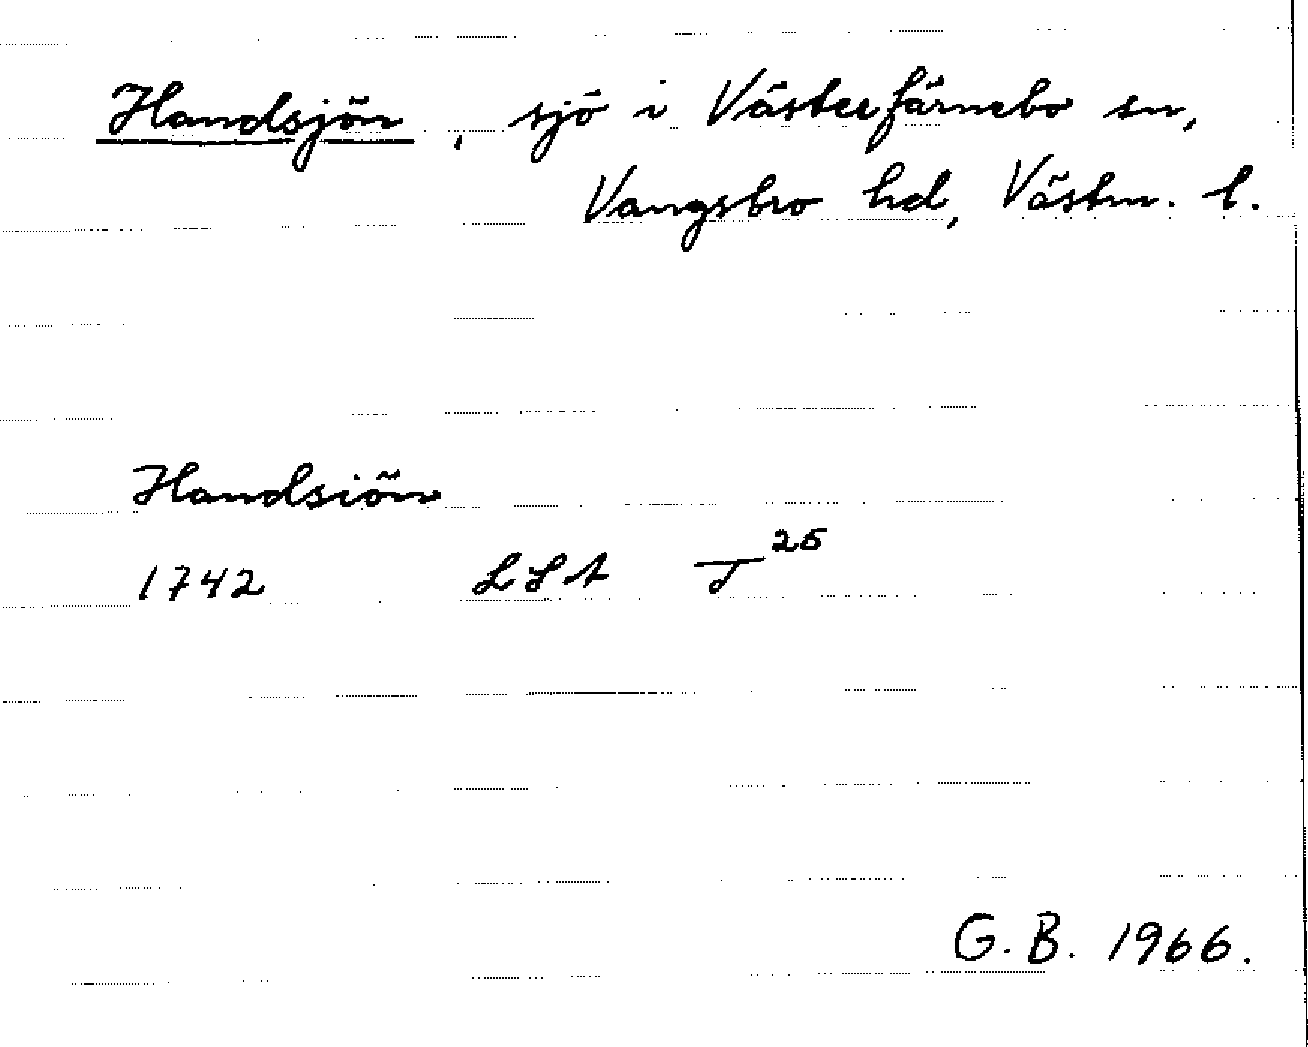 Handsjön, sjö i Västerfärnebo sn,
Vangsbro hd, Västm. l.
Handsiön
1742 LSA T 25
G. B. 1966.